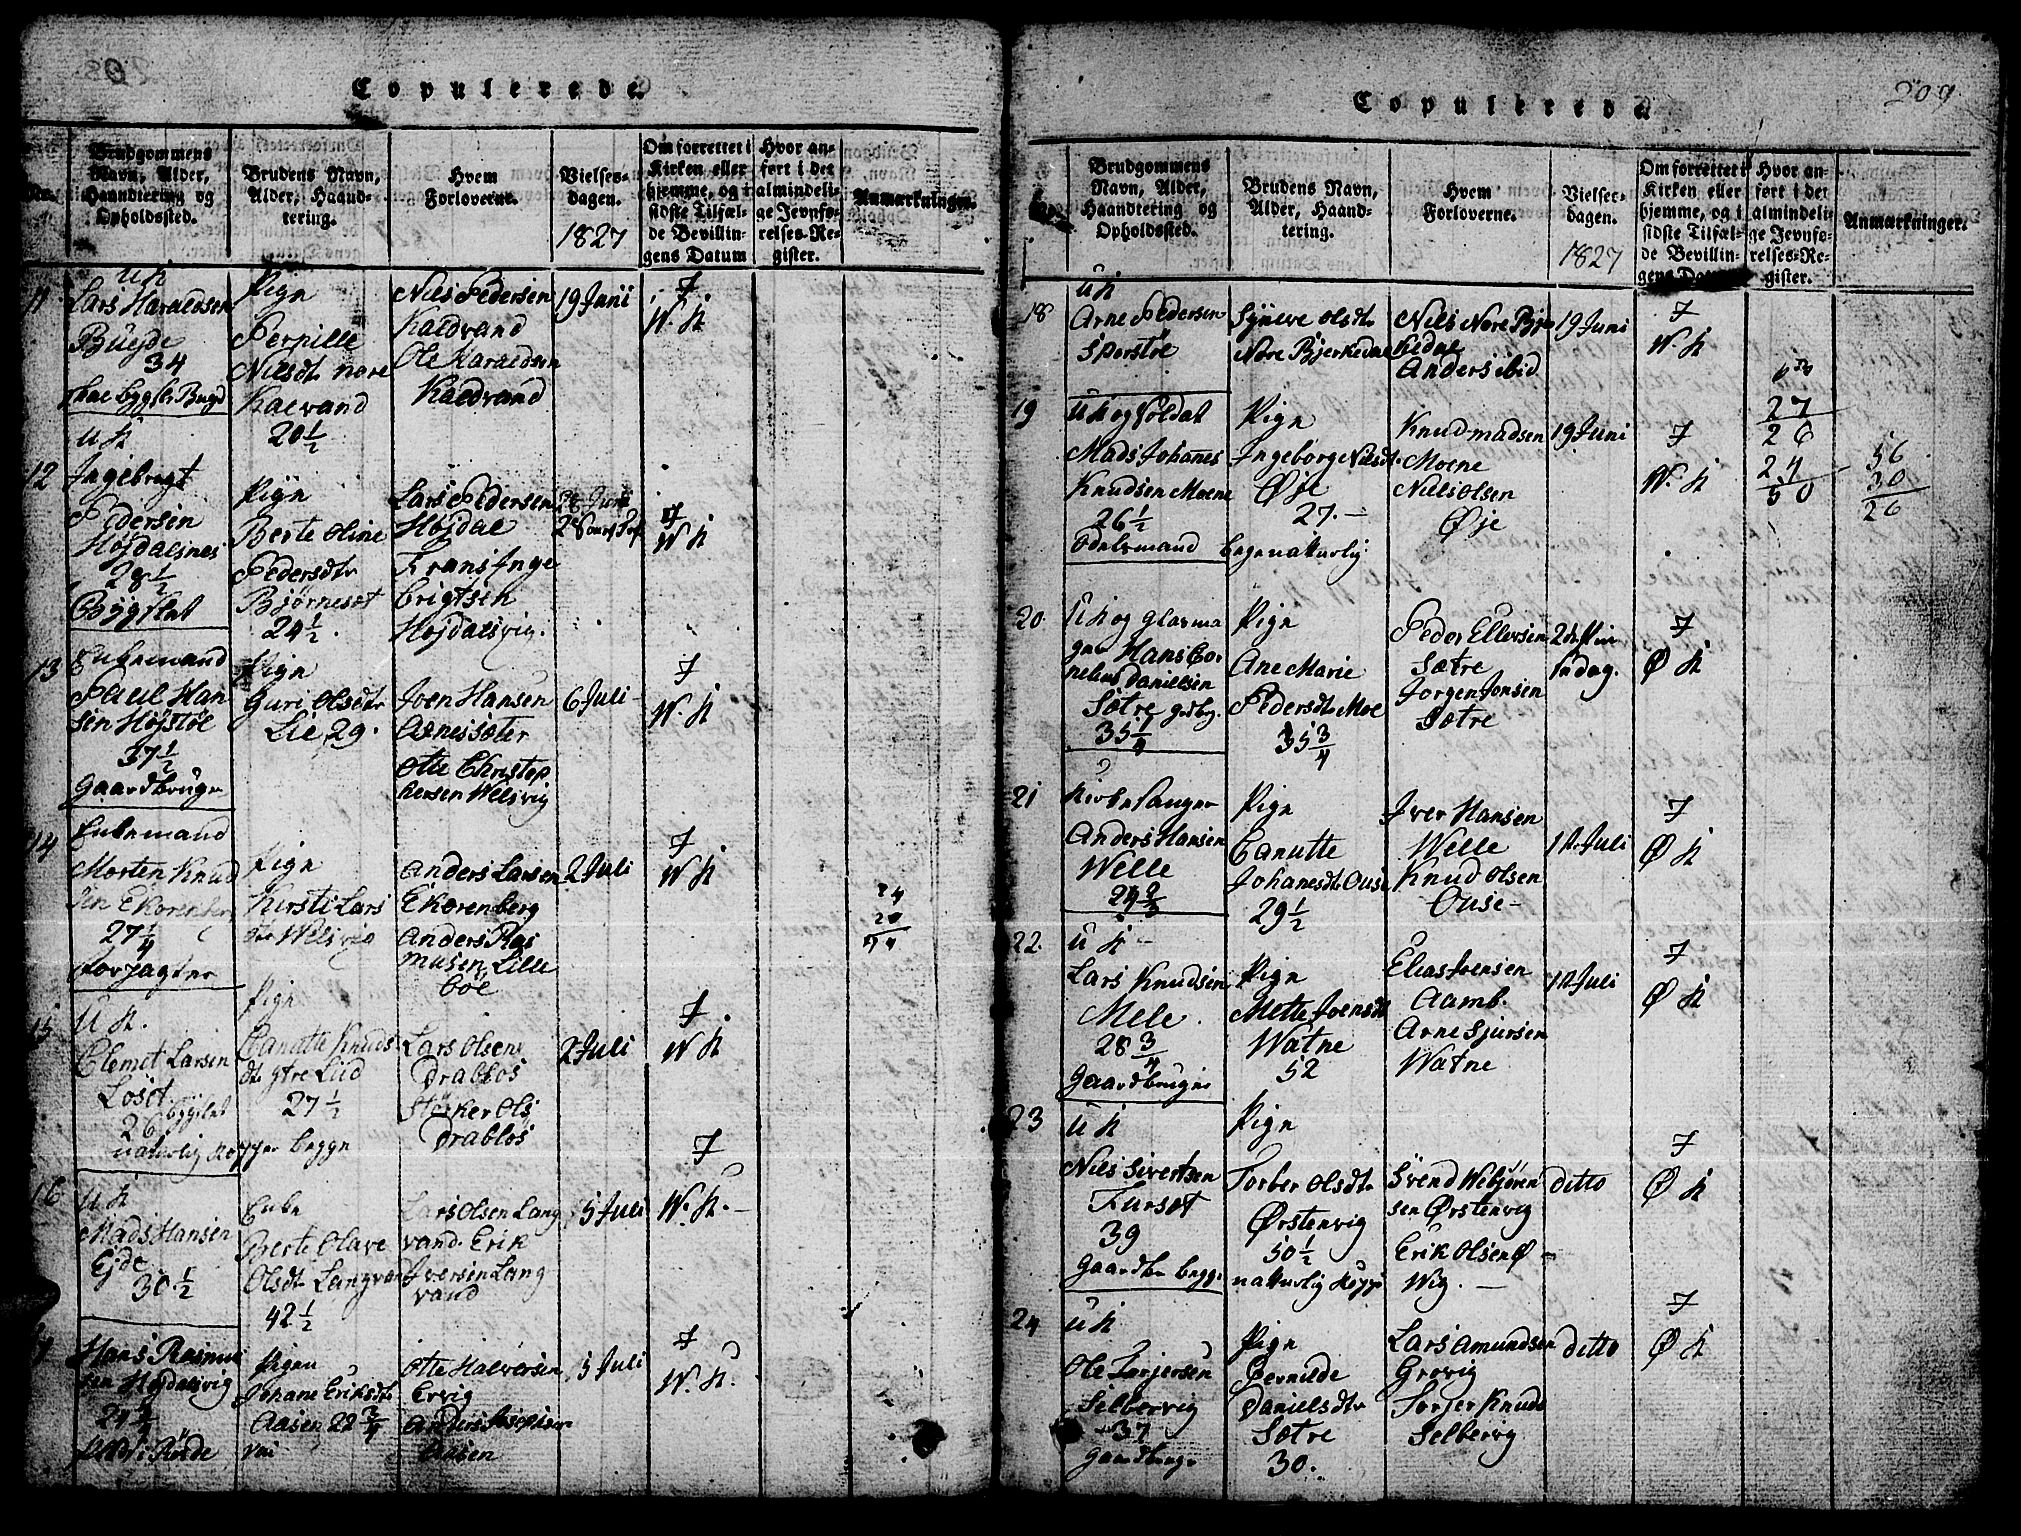 Copulerede.
No.
Brudgommens
Navn, Alder,
Haandtering og
Opholdssted.
Brudens Navn,
Alder, Haand-
tering.
Hvem
Forloverne.
Vielses-
dagen.
1827
Om forrettet i
Kirken eller
hjemme, og i
sidste Tilfæl-
de Bevillin-
gens Datum
Hvor an-
ført i det
almindeli-
ge Jevnfø-
relses-Re-
gister.
Anmærkninger.
11
U K
Lars Haraldsen
Büejde
34
Pign
Pernille
Nilsdtr nore
Kalvand
20 1/2
Nils Pedersen
Kaldvand
Ole Haraldsen
Kaldvand
19 Juni
F
W. K
12
U K
Ingebrigt
Pedersen
Højdalsnes
28 1/2
Bÿgslat
Pign
Berte Oline
Pedersdtr
Bjørneset
24 1/2.
Lars Pedersen
Højdal
Frans Inge
brigtsen
Højdalsvig.
F
W K
13
Enkemand
Paul Han
sen Højstøe
37 1/2
Gaardbruger
Pign
Guri Olsdtr
Lie, 29.
Iven Hansen
Aarnessæter
Otte Christop
hersen Welsvig
6 Juli
F
W. K
14
Enkemand
Morten Knud
sen Ekorenberg
27 1/4
Forpagter
Pign
Kirsti Lars
dtr Welsvig
Anders Larsen
Ekorenberg
Anders Ras
musen Lille
bøe
2 Juli
F
W K
24
20
15
U K.
Clemet Larsen
Løset
26 bÿgslat
naturlig Kopper begge
Pign
Canutte Knuds
dtr Ytre Lid
27 1/2
Lars Olsen
Drabløs
Størker Ols
Drabløs
2 Juli
F.
W K
16
U K
Mads Hansen
Ejde
30 1/2
Enke
Berte Olave
Olsdtr Langvand
42 1/2
Lars Olsen Lang
vand. Erik
Iversen Lang
vand
5 Juli
F
W. K.
17
Hans Rasmu
sen Højdalsvig
24 3/4
Pigen
Johane Eriksdtr
Aasen 22 3/4
Otte Halversen
Ervig
Anders Josephsen
Aasen
5 Juli
F
W. K.
Copulerede.
209
Brudgommens
Navn, Alder,
Haandtering og
Opholdssted.
Brudens Navn,
Alder, Haand-
tering.
Hvem
Forloverne.
Vielses-
dagen.
1827
Om forrettet i
Kirken eller
hjemme, og i
sidste Tilfæl-
de Bevillin-
gens Datum
Hvor an-
ført i det
almindeli-
ge Jevnfø-
relses-Re-
gister.
Anmærkninger.
18
U K
Arne Pedersen
Sporstøe
Syneve Olsdtr
Nore Bjerkedal
Nils Nore Bjer
kedal
Anders ibid
19 Juni
F
W. K
19
U K og Soldat
Mads Johanes
Knudsen Moene
26 1/2
Odelsmand
Pign
Ingeborg Nilsdtr
Øje
27.
begge naturlig
Knud Madsen
Moene
Niels Olsen
Øje
19 Juni
F
W. K
27
26
24
50
56
30
26
20.
U K og Glarma
ger Hans Cor
nelius Danielsen
Sætre
35 1/4
Pign
Ane Marie
Pedersdtr Moe
35 3/4
Peder Ellersen
Sætre
Jorgen Jonsen
Sætre
2de Pin
sedag.
F
Ø K
21
Kirkesanger
Anders Hansen
Welle
Pign
Canutte
Johanesdtr Ouse
29 1/2
Iver Hansen
Welle
Knud Olsen
Ouse
1te Juli
F
Ø K
22.
U K
Lars Knudsen
Mele.
28 3/4
Gaardbruger
Pign
Mette Ivensdtr
Watne
52
Elias Ivensen
Aamb.
Arne Sjursen
Watne
1te Juli
F
Ø K
23
U K
Nils Sivertsen
Furset
39
Gaardbr begge
Pign
Torber Olsdtr
Ørstenvig
50 1/2
naturlig Kopper
Svend Webjøren
sen Ørstenvig
Erik Olsen Ø
Wig.
ditto
F
Ø K
24
U K
Ole Torjersen
Selbervig
37
Gaardbruger
Pign
Pernilde
Danielsdtr
Sætre
30.
Lars Amundsen
Grøvig
Torjer Knuds
Selbervig
ditto
F
Ø K